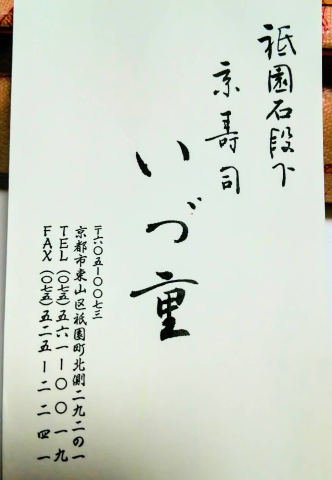 祇園石段下
京寿司
いづ重
〒六〇五-〇〇七三
京都市東山区祇園町北側二九二の一
TEL(〇七五)五六一-〇〇一九
FAX(〇七五)五二五-二二四一